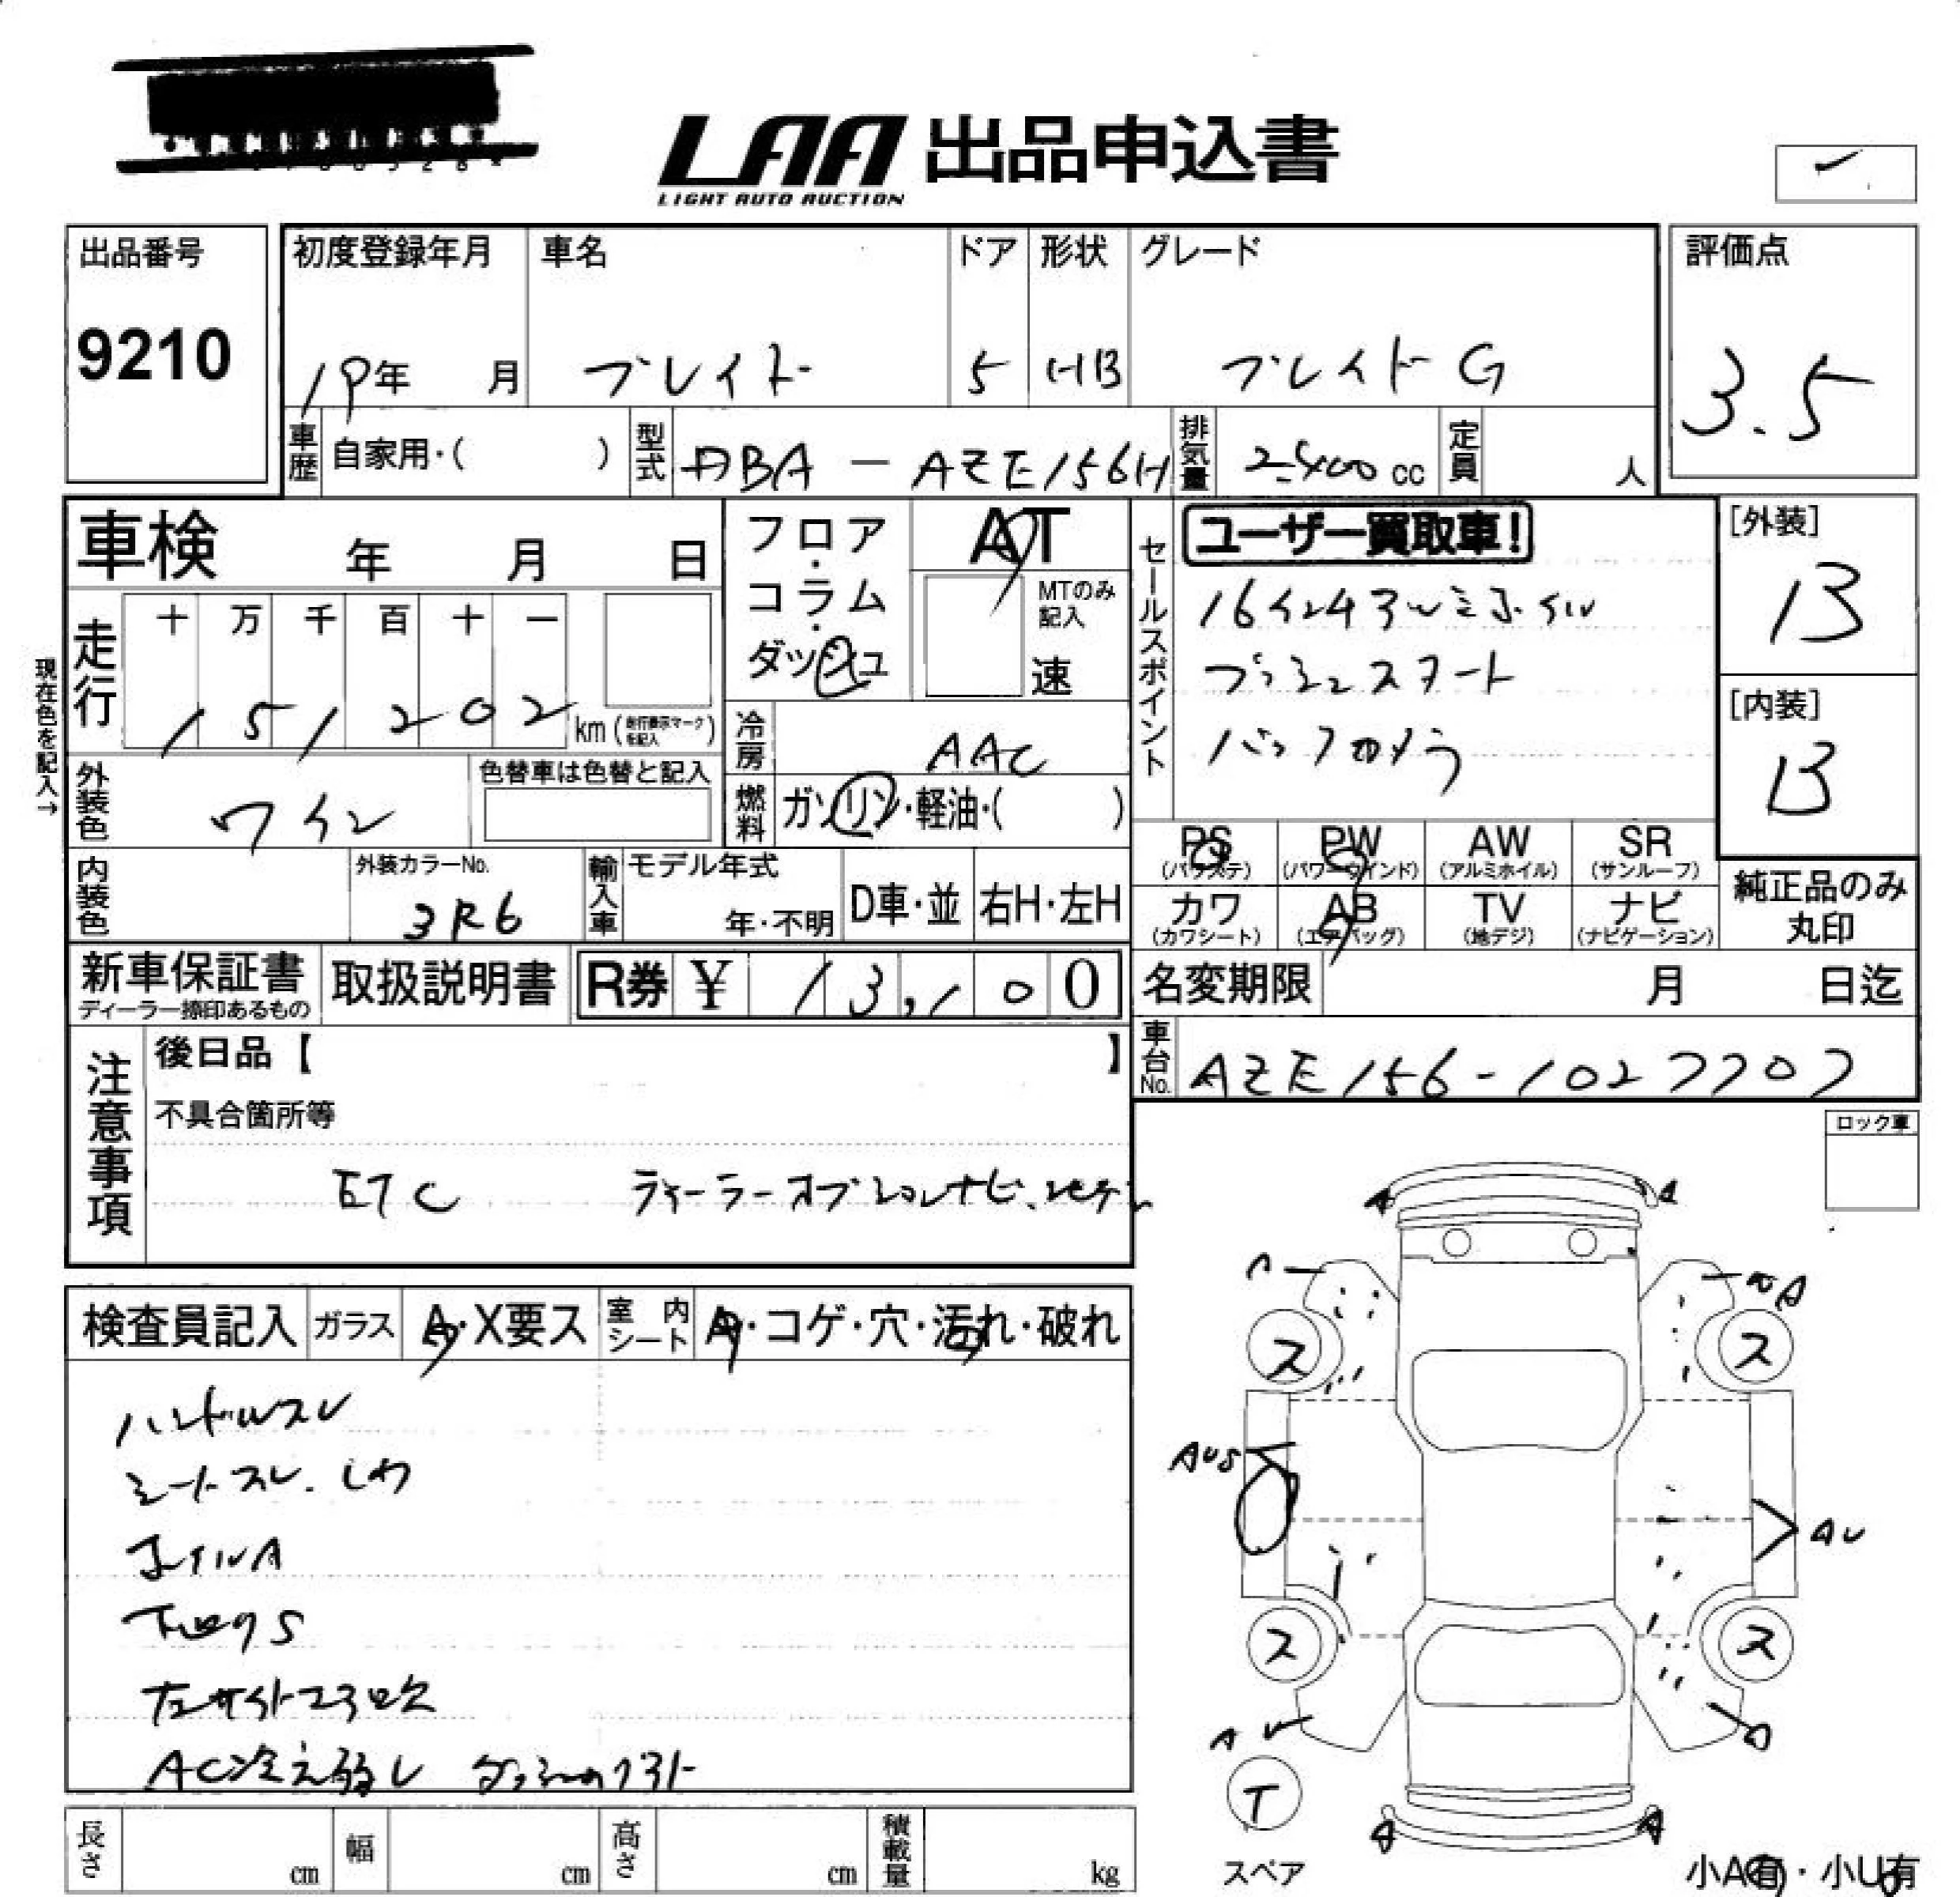 LAA 出品申込書
LIGHT AUTO AUCTION
出品番号
9210
初度登録年月
19年 月
車名
ブレイド
ドア
5
形状
HB
グレード
ブレイド G
評価点
3.5
車歴 自家用・( )
型式 DBA - AZE156H
排気量 2400 cc
定員 人
車検 年 月 日
フロア・コラム・ダッシュ
AT
MTのみ記入
速
セールスポイント
ユーザー買取車!
16インチアルミホイル
プッシュスタート
バックカメラ
[外装]
B
[内装]
B
現在色を記入→
走行
十 万 千 百 十 一
1 5 1 2 0 2 km (走行表示マークを記入)
冷房 AAC
燃料 ガソリン・軽油・( )
外装色 ワイン
色替車は色替と記入
内装色
外装カラーNo.
3R6
輸入車
モデル年式
年・不明
D車・並
右H・左H
PS (パワステ)
PW (パワーウインド)
AW (アルミホイル)
SR (サンルーフ)
カワ (カワシート)
AB (エアバッグ)
TV (地デジ)
ナビ (ナビゲーション)
純正品のみ丸印
新車保証書
ディーラー捺印あるもの
取扱説明書
R券 ¥ 13,100
名変期限 月 日迄
車台No. AZE156-1027707
注意事項
後日品【 】
不具合箇所等
ETC ディーラーオプションナビ.
ロック車
検査員記入
ガラス A・X要ス
室内シート A・コゲ・穴・汚れ・破れ
ハンドルスレ
シートスレ.しわ
ホイルA
下回りS
AC冷え弱し
A A
A
ス ス
AUS
AU
ス ス
AU
T
スペア
A A
小A有・小U有
長さ cm
幅 cm
高さ cm
積載量 kg